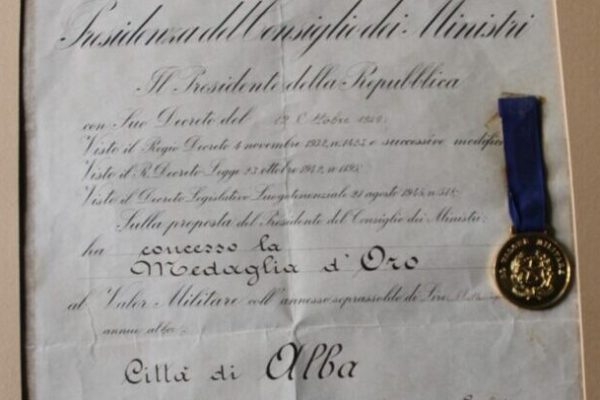 Presidenza del Consiglio dei Ministri
Il Presidente della Repubblica
con Suo Decreto del
Visto il Regio Decreto 4 novembre 1932, n. 1423 e successive modifi
Visto il R. Decreto Legge 23 ottobre 1942, n. 1195
Visto il Decreto Legislativo Luogotenenziale 21 agosto 1945, n. 518
Sulla proposta del Presidente del Consiglio dei Ministri
ha concesso la
Medaglia d'Oro
al Valor Militare coll'annesso soprassoldo di Lire
annue alla:
Città di Alba
AL VALORE MILITARE